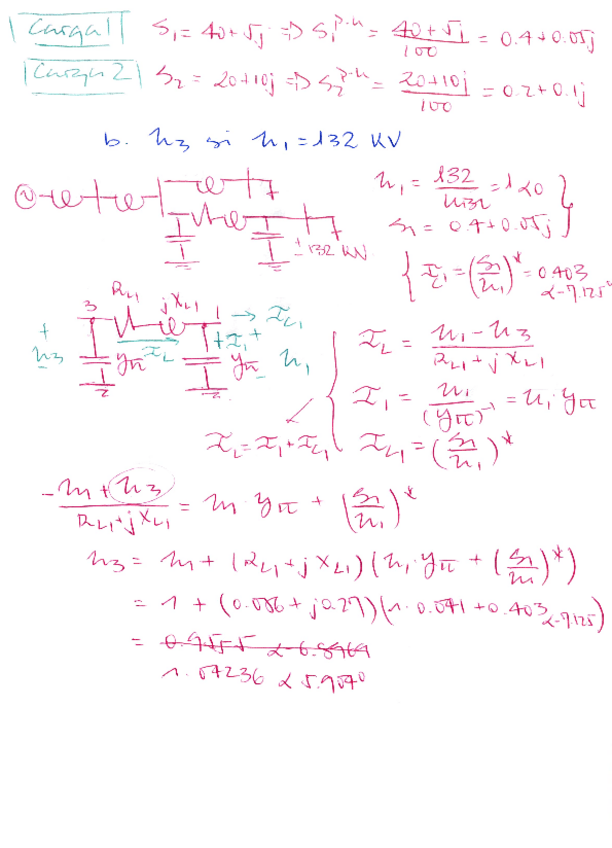 Carga 1 S₁ = 40+5j => S₁^p.u = (40+5j)/100 = 0.4+0.05j
Carga 2 S₂ = 20+10j => S₂^p.u = (20+10j)/100 = 0.2+0.1j
b. u₃ si u₁ = 132 KV
u₁ = 132/u_B2L = 1∠0
S₁ = 0.4+0.05j
± 132 KV
I_C1 = (S₁/u₁)* = 0.403 ∠-7.125°
R_L1 jX_L1
3 1 → I_C1
+ u₃ - yπ I_L + I₁ yπ + u₁ -
I_L = (u₁-u₃)/(R_L1+jX_L1)
I₁ = u₁/(yπ)⁻¹ = u₁·yπ
I_L = I₁+I_C1 I_C1 = (S₁/u₁)*
(-u₁+u₃)/(R_L1+jX_L1) = u₁·yπ + (S₁/u₁)*
u₃ = u₁ + (R_L1+jX_L1)(u₁·yπ + (S₁/u₁)*)
= 1 + (0.086+j0.27)(1·0.041+0.403∠-7.125)
= 0.9555 ∠-6.8969
1.07236 ∠5.907°